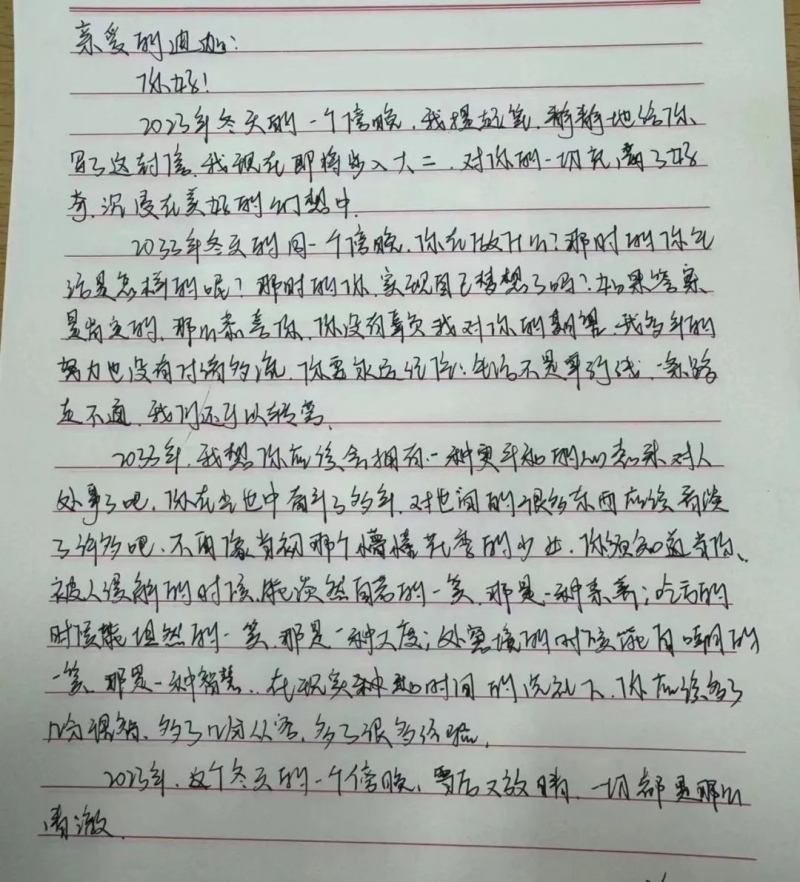 亲爱的迪加:
你好!
2023年冬天的一个傍晚,我提起笔,静静地给你
写了这封信,我现在即将步入大二,对你的一切充满了好
奇,沉浸在美好的幻想中.
2033年冬天的同一个傍晚,你在做什么?那时的你生
活是怎样的呢?那时的你,实现自己梦想了吗?如果答案
是肯定的,那么恭喜你,你没有辜负我对你的期望,我多年的
努力也没有付诸东流,你要永远记住:生活不是单行线,一条路
走不通,我们还可以转弯.
2033年,我想你应该会拥有一种更平和的心态来对人
处事了吧,你在当中奋斗了多年,对世间的很多东西应该看淡
了许多吧,不再像当初那个懵懂花季的少女,你须知道当你、
被人误解的时候,能淡然自若的一笑,那是一种素养;吃亏的
时候能坦然的一笑,那是一种大度;处窘境的时候能自嘲的
一笑,那是一种智慧.在现实和时间的洗礼下,你应该多了
几分理智,多了几分从容,多了很多经验,
2023年,这个冬天的一个傍晚,雪后又放晴,一切都是那么
清澈.